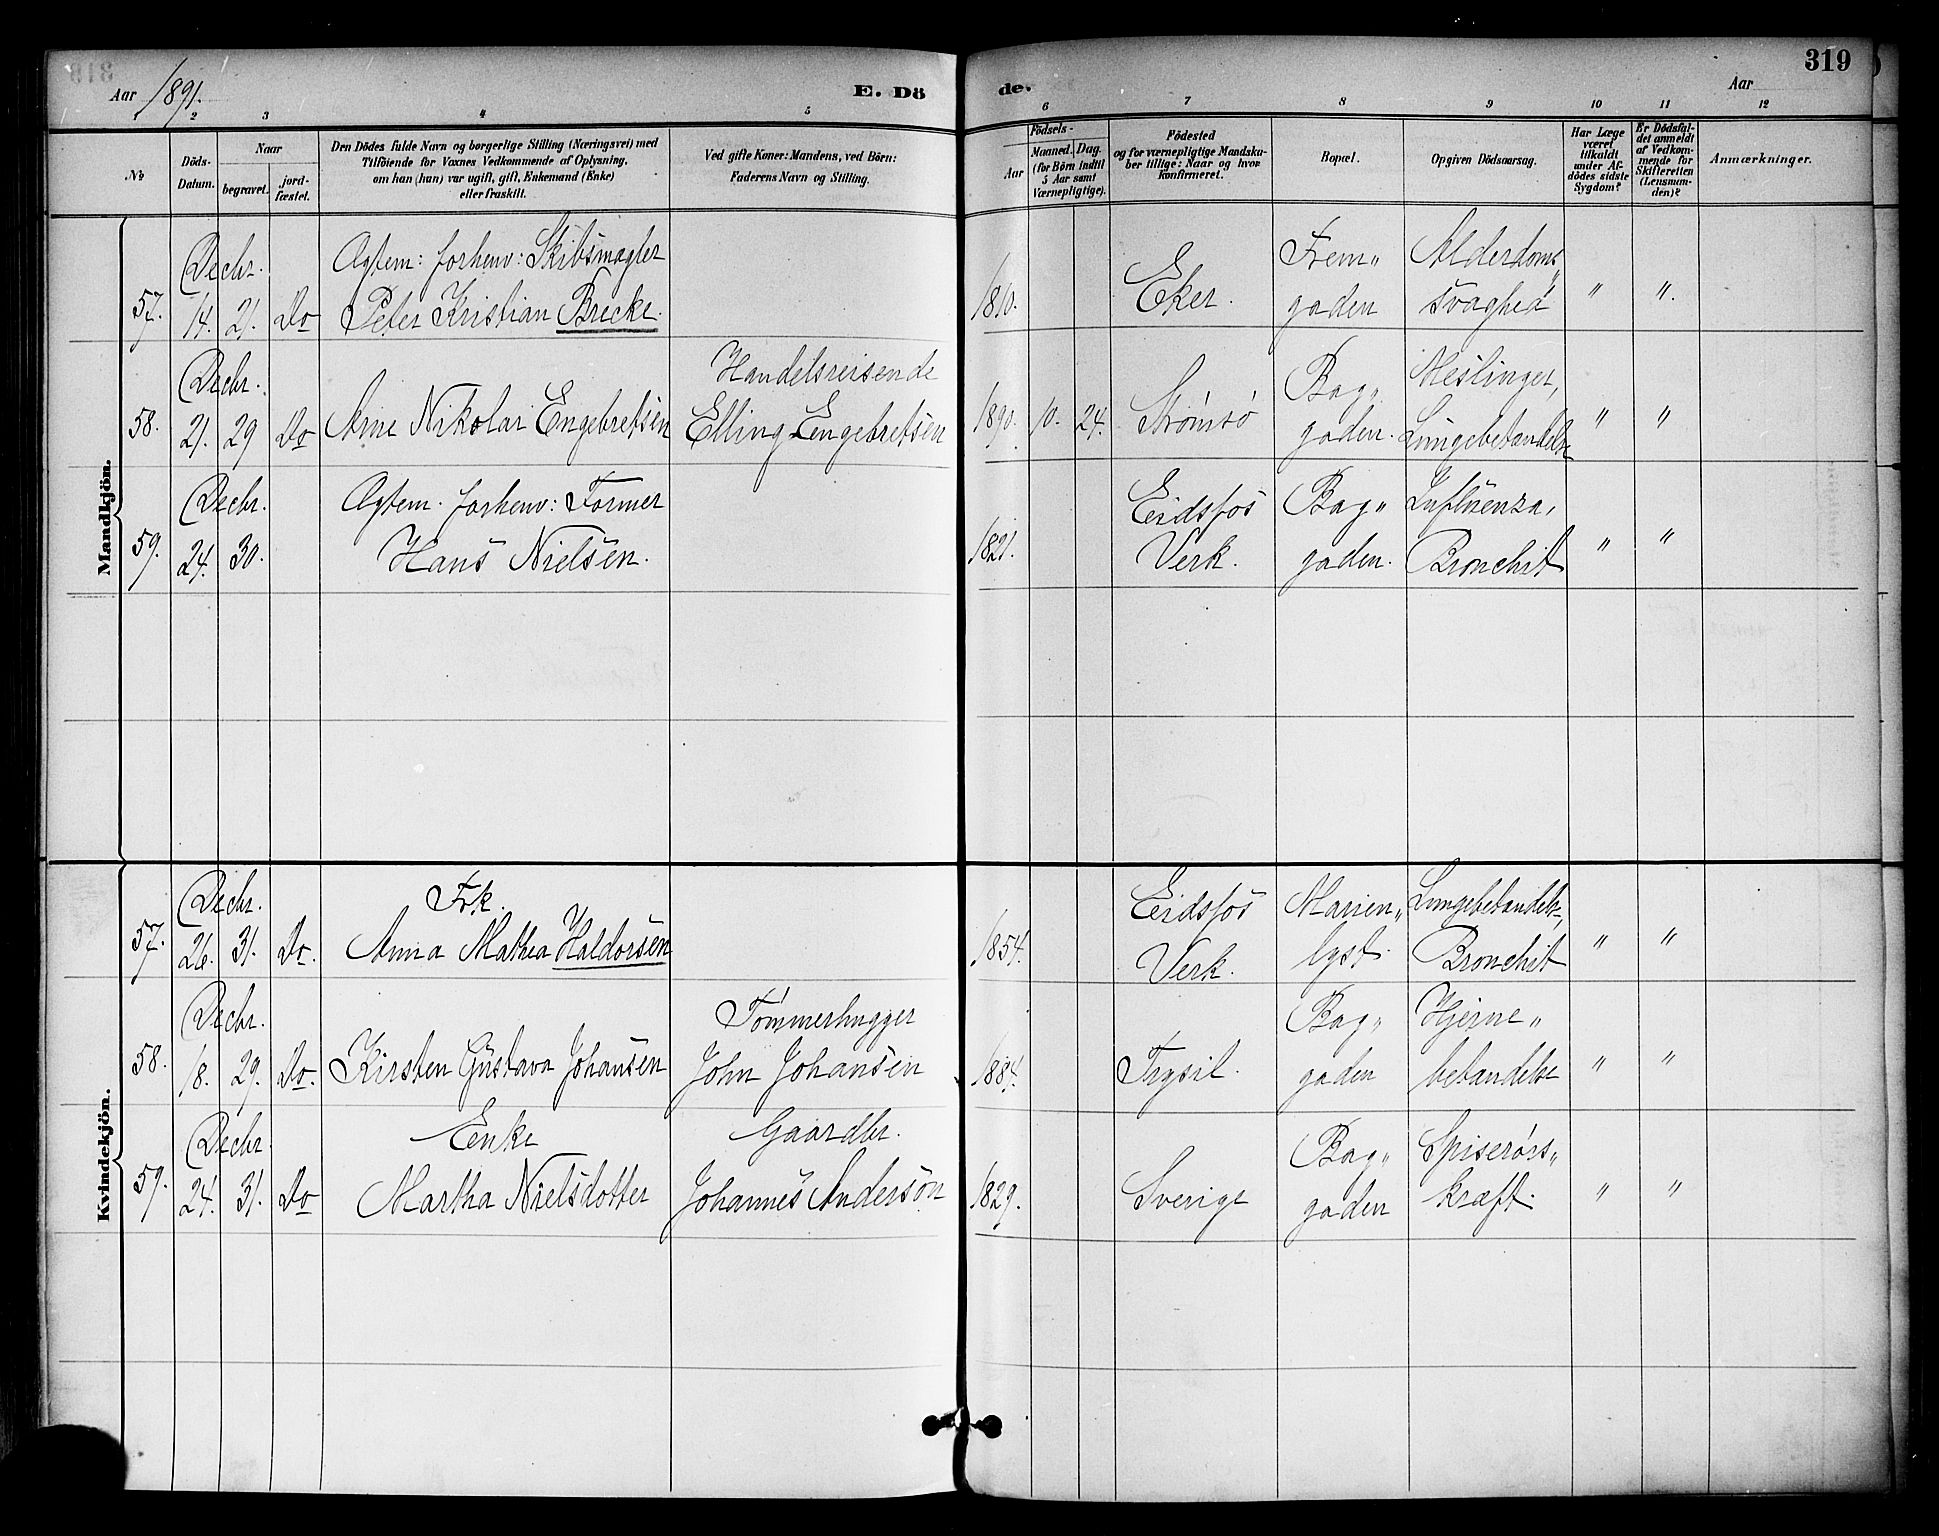 319
Aar 1891.
E. Dö
de.
Aar
1 2 3 4 5 6 7 8 9 10 11 12
№
Döds-
Datum.
Naar
begravet.
jord-
fæstet.
Den Dödes fulde Navn og borgerlige Stilling (Næringsvei) med
Tilföiende for Voxnes Vedkommende af Oplysning,
om han (hun) var ugift, gift, Enkemand (Enke)
eller fraskilt.
Ved gifte Koner: Mandens, ved Börn:
Faderens Navn og Stilling.
Födsels-
Aar
Maaned.
Dag.
(for Börn indtil
5 Aar samt
Værnepligtige).
Födested
og for værnepligtige Mandska-
ber tillige: Naar og hvor
konfirmeret.
Bopæl.
Opgiven Dödsaarsag.
Har Læge
været
tilkaldt
under Af-
dödes sidste
Sygdom?
Er Dödsfal-
det anmeldt
af Vedkom-
mende for
Skifteretten
(Lensman-
den)?
Anmærkninger.
Mandkjön.
Decbr. Ægtem: forhenv: Skibsmægler Frem„ Alderdoms„
57. 14. 21. Do Peter Kristian Brecke. 1810. Eker. gaden svaghed " ".
Decbr. Handelsreisende Bag„ Meslinger,
58. 21. 29 Do Arne Nikolai Engebretsen Elling Engebretsen 1890. 10. 24. Strømsö gaden. Lungebetændelse " "
Decbr. Ægtem. forhenv: Former Eidsfos Bag„ Influenza,
59. 24. 30. Hans Nielsen. 1821. Verk. gaden. Bronchit " "
Kvindekjön.
Decbr. Frk. Eidsfos Marien„ Lungebetændelse,
57. 26. 31. Do. Anna Mathea Haldorsen 1854. Verk. lyst. Bronchit " "
Decbr. Tømmerhugger Bag„ Hjerne„
58. 18. 29. Do. Kirsten Gustava Johansen John Johansen 1884. Trysil. gaden betændelse " "
Decbr. Enke Gaardbr. Bag„ Spiserørs„
59. 24. 31. Do Martha Nielsdotter Johannes Anderson 1829. Sverige gaden kræft. " "